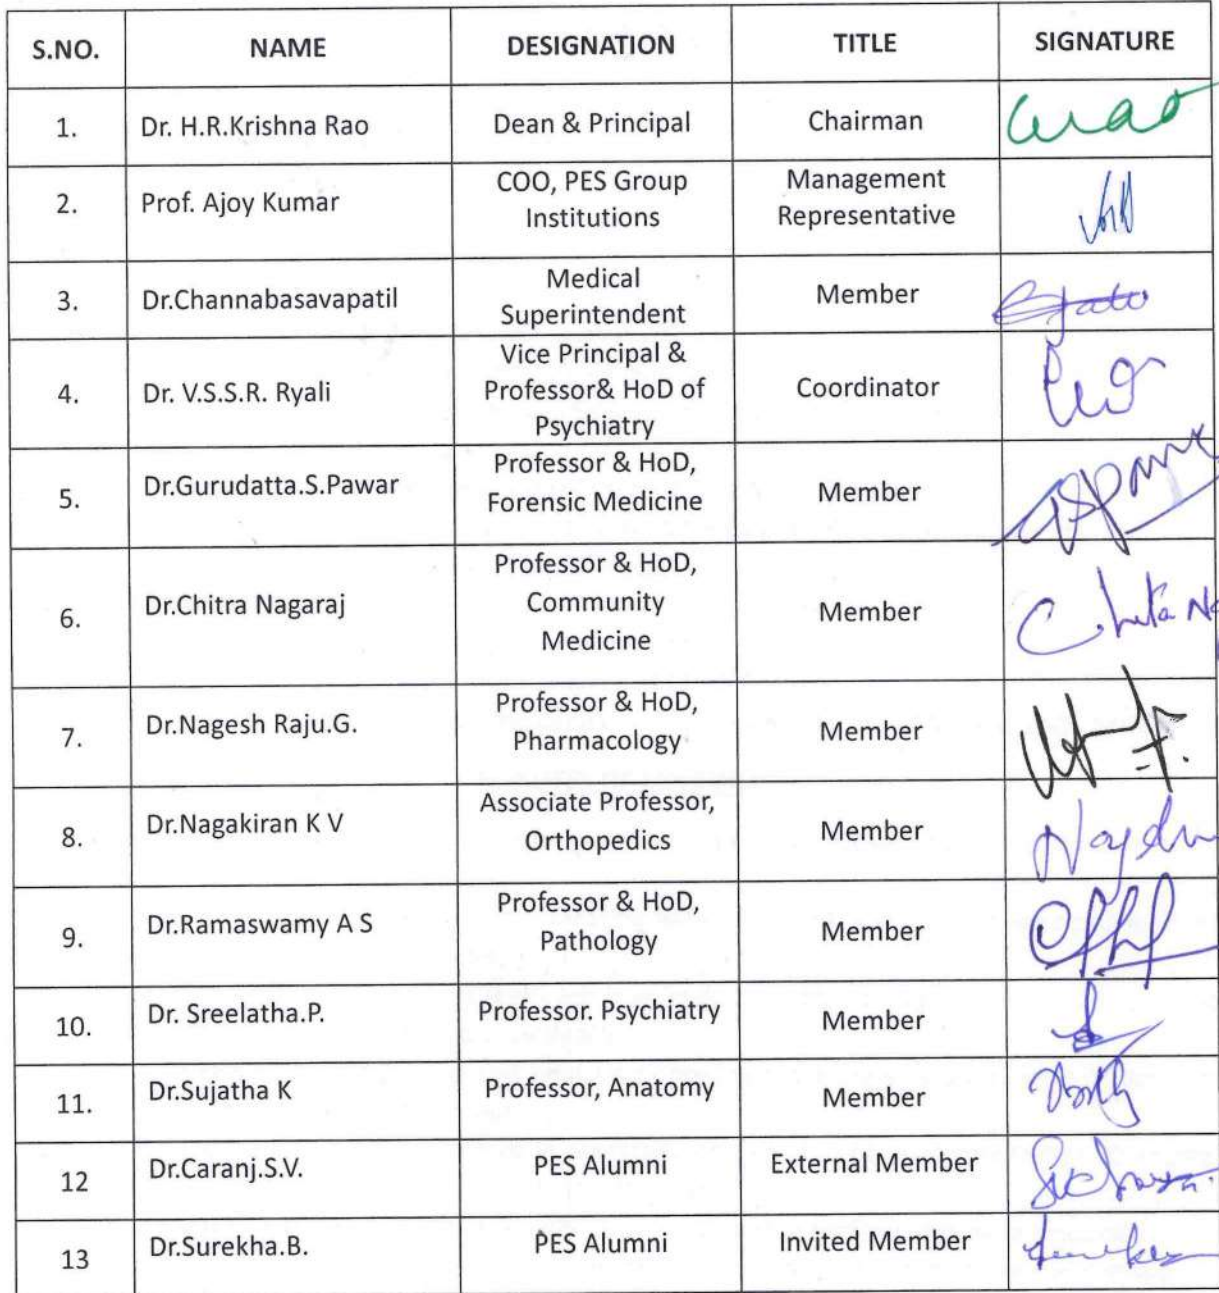 S.NO. NAME DESIGNATION TITLE SIGNATURE
1. Dr. H.R.Krishna Rao Dean & Principal Chairman
2. Prof. Ajoy Kumar COO, PES Group Management
Institutions Representative
3. Dr.Channabasavapatil Medical Member
Superintendent
4. Dr. V.S.S.R. Ryali Vice Principal & Coordinator
Professor& HoD of
Psychiatry
5. Dr.Gurudatta.S.Pawar Professor & HoD, Member
Forensic Medicine
6. Dr.Chitra Nagaraj Professor & HoD, Member
Community
Medicine
7. Dr.Nagesh Raju.G. Professor & HoD, Member
Pharmacology
8. Dr.Nagakiran K V Associate Professor, Member
Orthopedics
9. Dr.Ramaswamy A S Professor & HoD, Member
Pathology
10. Dr. Sreelatha.P. Professor. Psychiatry Member
11. Dr.Sujatha K Professor, Anatomy Member
12 Dr.Caranj.S.V. PES Alumni External Member
13 Dr.Surekha.B. PES Alumni Invited Member